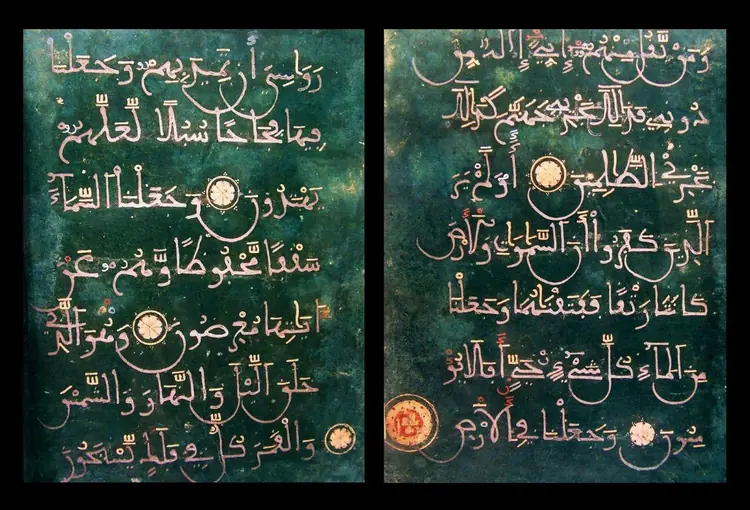 وَمَنْ يَقُلْ مِنْهُمْ إِنِّي إِلَهٌ مِّن
دُونِهِ فَذَلِكَ نَجْزِيهِ جَهَنَّمَ كَذَلِكَ
نَجْزِي الظَّالِمِينَ أَوَلَمْ يَرَ
الَّذِينَ كَفَرُوا أَنَّ السَّمَاوَاتِ وَالْأَرْضَ
كَانَتَا رَتْقًا فَفَتَقْنَاهُمَا وَجَعَلْنَا
مِنَ الْمَاءِ كُلَّ شَيْءٍ حَيٍّ أَفَلَا يُؤْ
مِنُونَ وَجَعَلْنَا فِي الْأَرْضِ
رَوَاسِيَ أَن تَمِيدَ بِهِمْ وَجَعَلْنَا
فِيهَا فِجَاجًا سُبُلًا لَّعَلَّهُمْ
يَهْتَدُونَ وَجَعَلْنَا السَّمَاءَ
سَقْفًا مَّحْفُوظًا وَهُمْ عَنْ
آيَاتِهَا مُعْرِضُونَ وَهُوَ الَّذِي
خَلَقَ اللَّيْلَ وَالنَّهَارَ وَالشَّمْسَ
وَالْقَمَرَ كُلٌّ فِي فَلَكٍ يَسْبَحُونَ